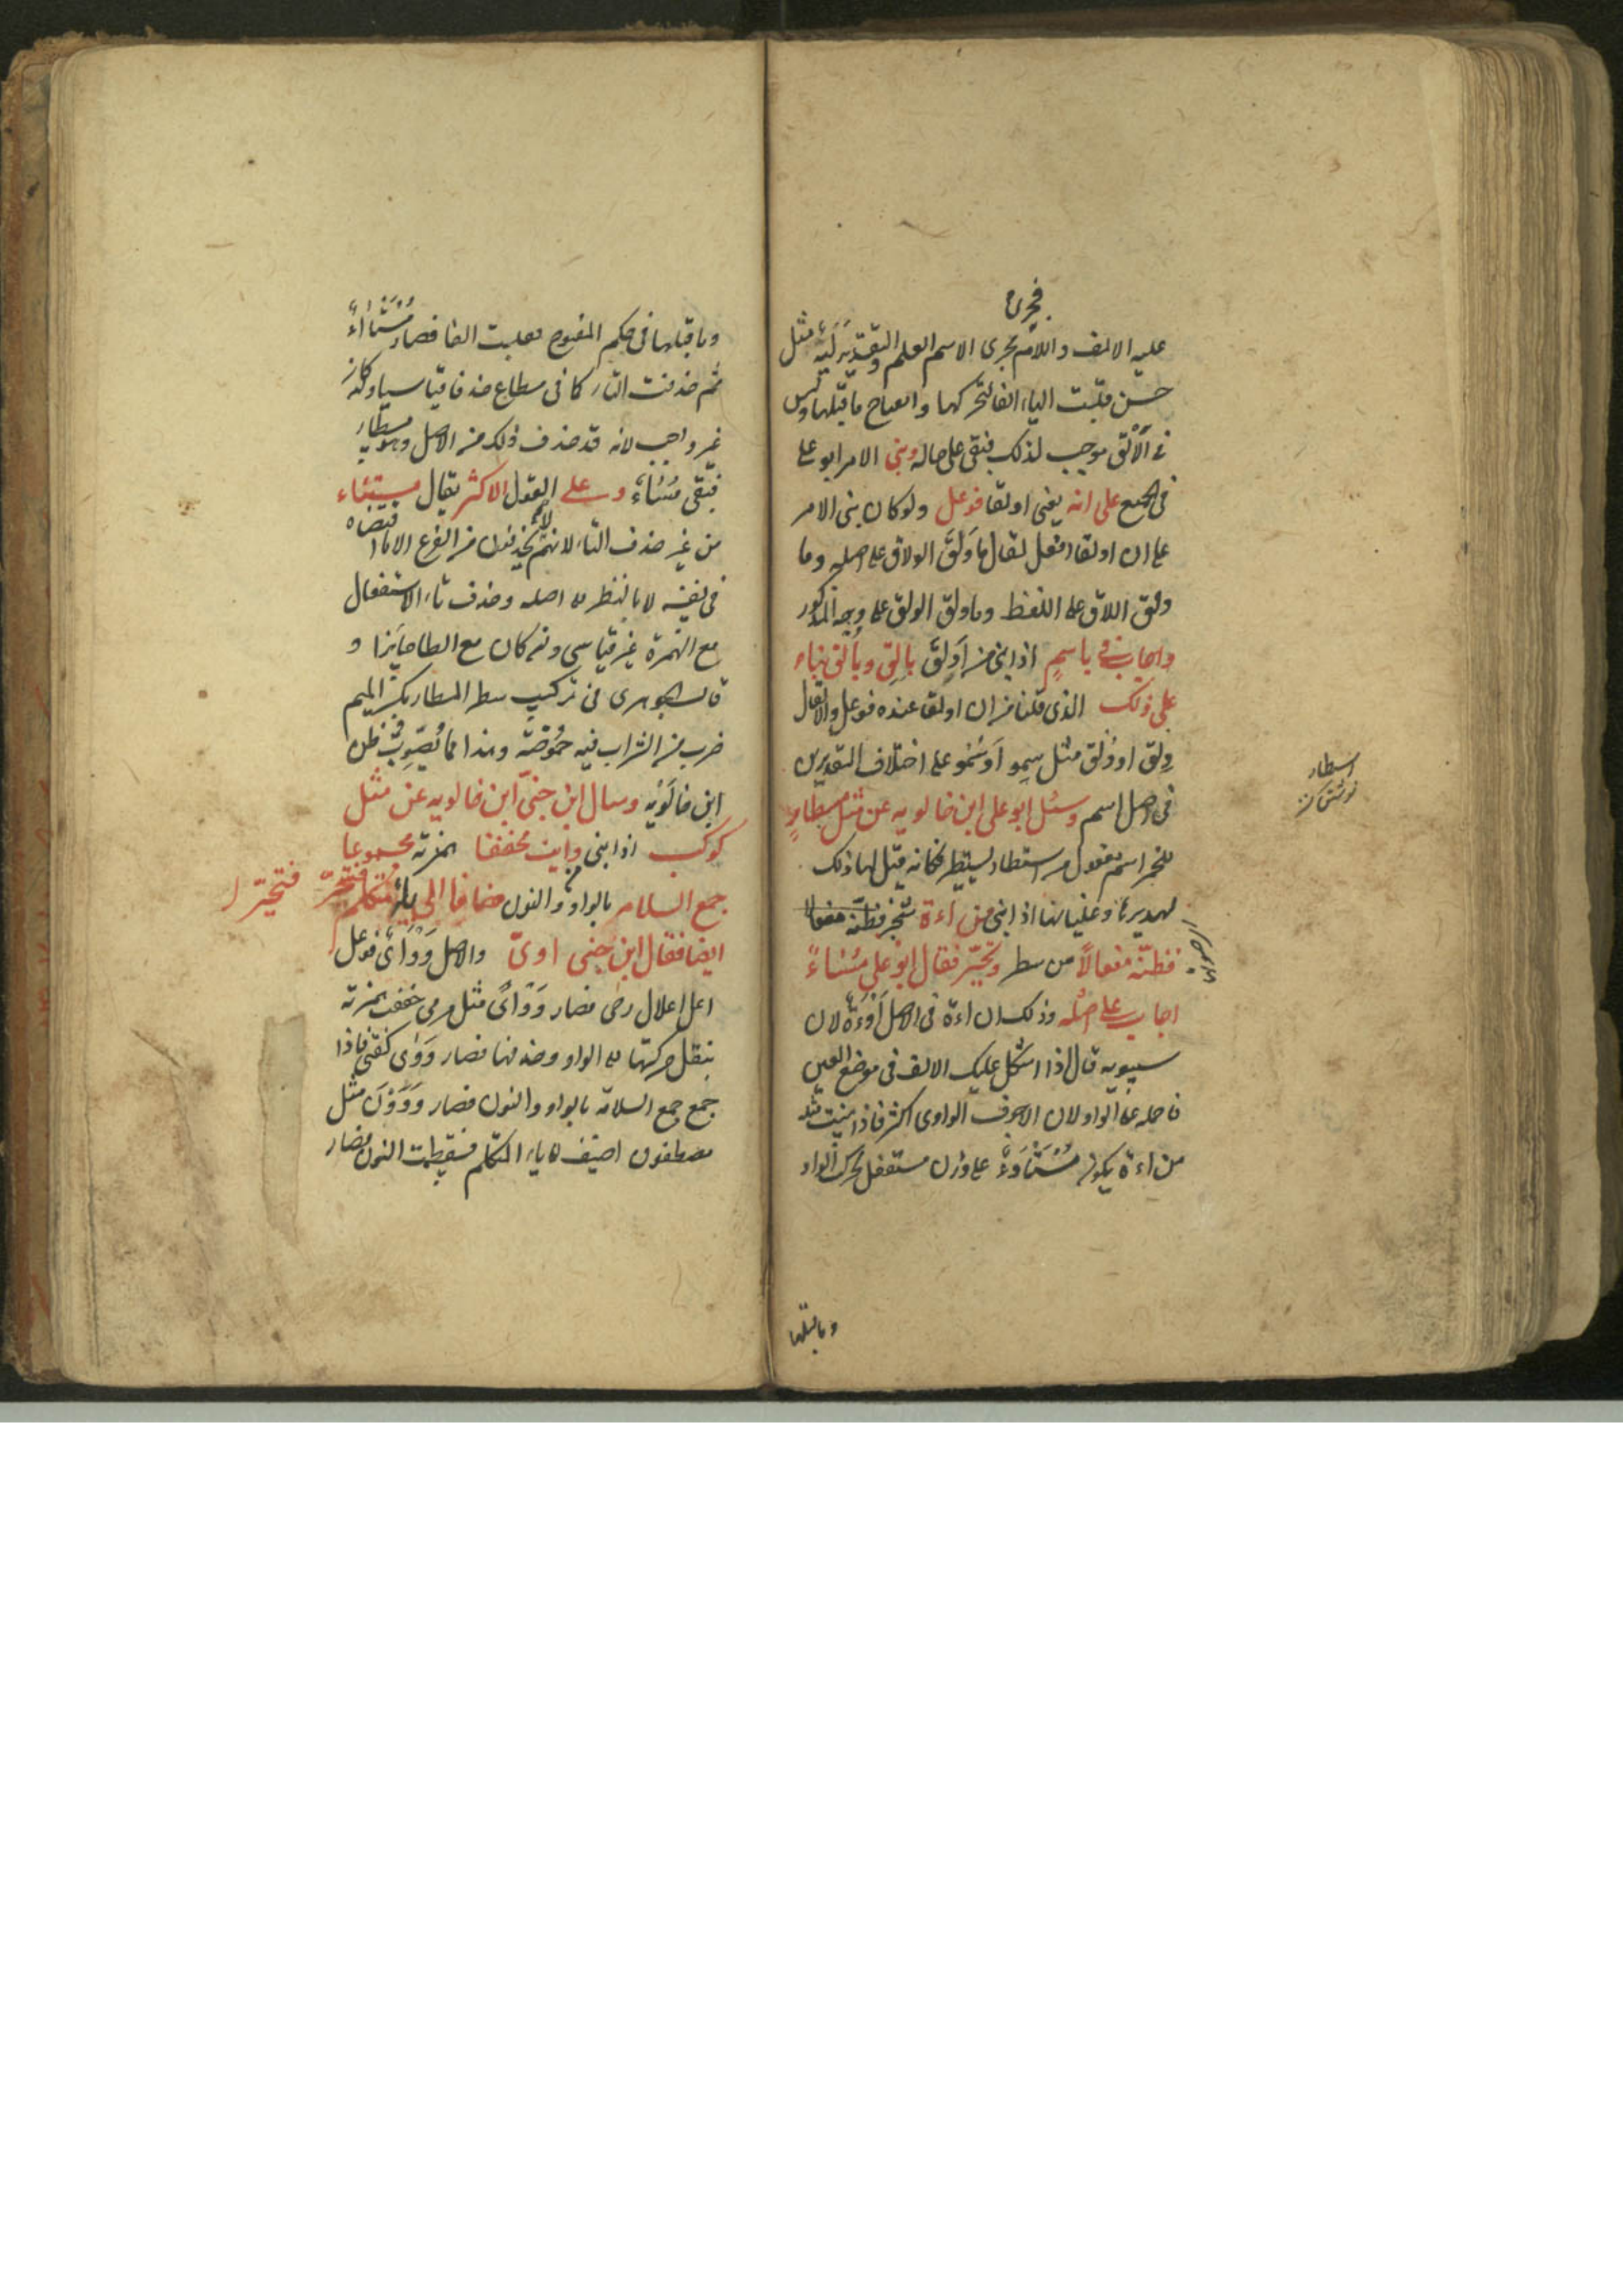 فجرى
عليه الالف واللام مجرى الاسم العلم والتقدير لَيَهَ مثل
حسن قلبت الياء الفا لتحركها وانفتاح ما قبلها وليس
فى الألق موجب لذلك فبقى على حاله وبنى الامر ابو على
فى الجميع على انه يعنى اولقا فوعل ولو كان بنى الامر
على ان اولقا افعل لقال ما وَلَقَ الولاق على اصله وما
ولق اللاق على اللفظ وما ولق الولق على وجه المذكور
واجاب فى باسمٍ اذا بنى من اَولق بالِق وبالُق بناء
على ذلك الذى قلنا من ان اولقا عنده فوعل والا لقال
وِلق او وُلق مثل سِمو او سُمو على اختلاف التقديرين
فى اصل اسم وسئل ابو على ابن خالويه عن مثل مسطارٍ
للخمر اسم مفعول من استطار يستطير فكانه قيل لها ذلك
لهديرها وغليانها اذا بنى من اءة
فظنّه مفعالاً من سطر وتحيّر فقال ابو على مُسْئاءً
اجاب على اصله وذلك ان اءة فى الاصل اَوَءَة لان
سيبويه قال اذا اشكل عليك الالف فى موضع العين
فاحمله على الواو لان الاجوف الواوى اكثر فاذا بنيت مثله
من اءة يكون مُسْتَأْوَءٌ على وزن مستفعل تحرك الواو
وما قبلها
اسطار
وما قبلها فى حكم المفتوح فقلبت الفا فصار مُسْتَئاءٌ
ثم حذفت التاء كما فى مسطاع حذفا قياسيا وكان
غير واجب لانه قد حذف ذلك من الاصل وهو مسطار
فبقى مُسْئاءٌ وعلى القول الاكثر يقال مستئاء
من غير حذف التاء لانهم لا يحذفون من الفرع الا ما اقتضاه
فى نفسه لا بالنظر الى اصله وحذف تاء الاستفعال
مع الهمزة غير قياسى وان كان مع الطا جايزا و
قال الجوهرى فى تركيب سطر المسطار بكسر الميم
ضرب من الشراب فيه حموضة وهذا مما يُصَوِّبُ ظن
ابن خالَوَيْه وسال ابن جنّى ابن خالويه عن مثل
كوكب اذا بنى من وايت مخففا همزته مجموعا
جمع السلامة بالواو والنون مضافا الى ياء المتكلم فتحيّر
ايضا فقال ابن جنى اوىّ والاصل وَوْأَىٌ فوعل
اعل اعلال رحى فصار وَوْأىً مثل مرمى خففت همزته
بنقل حركتها الى الواو وحذفها فصار وَوَى كفتى فاذا
جمع جمع السلامة بالواو والنون فصار وَوَوْنَ مثل
مصطفون اضيف الى ياء المتكلم فسقطت النون فصار